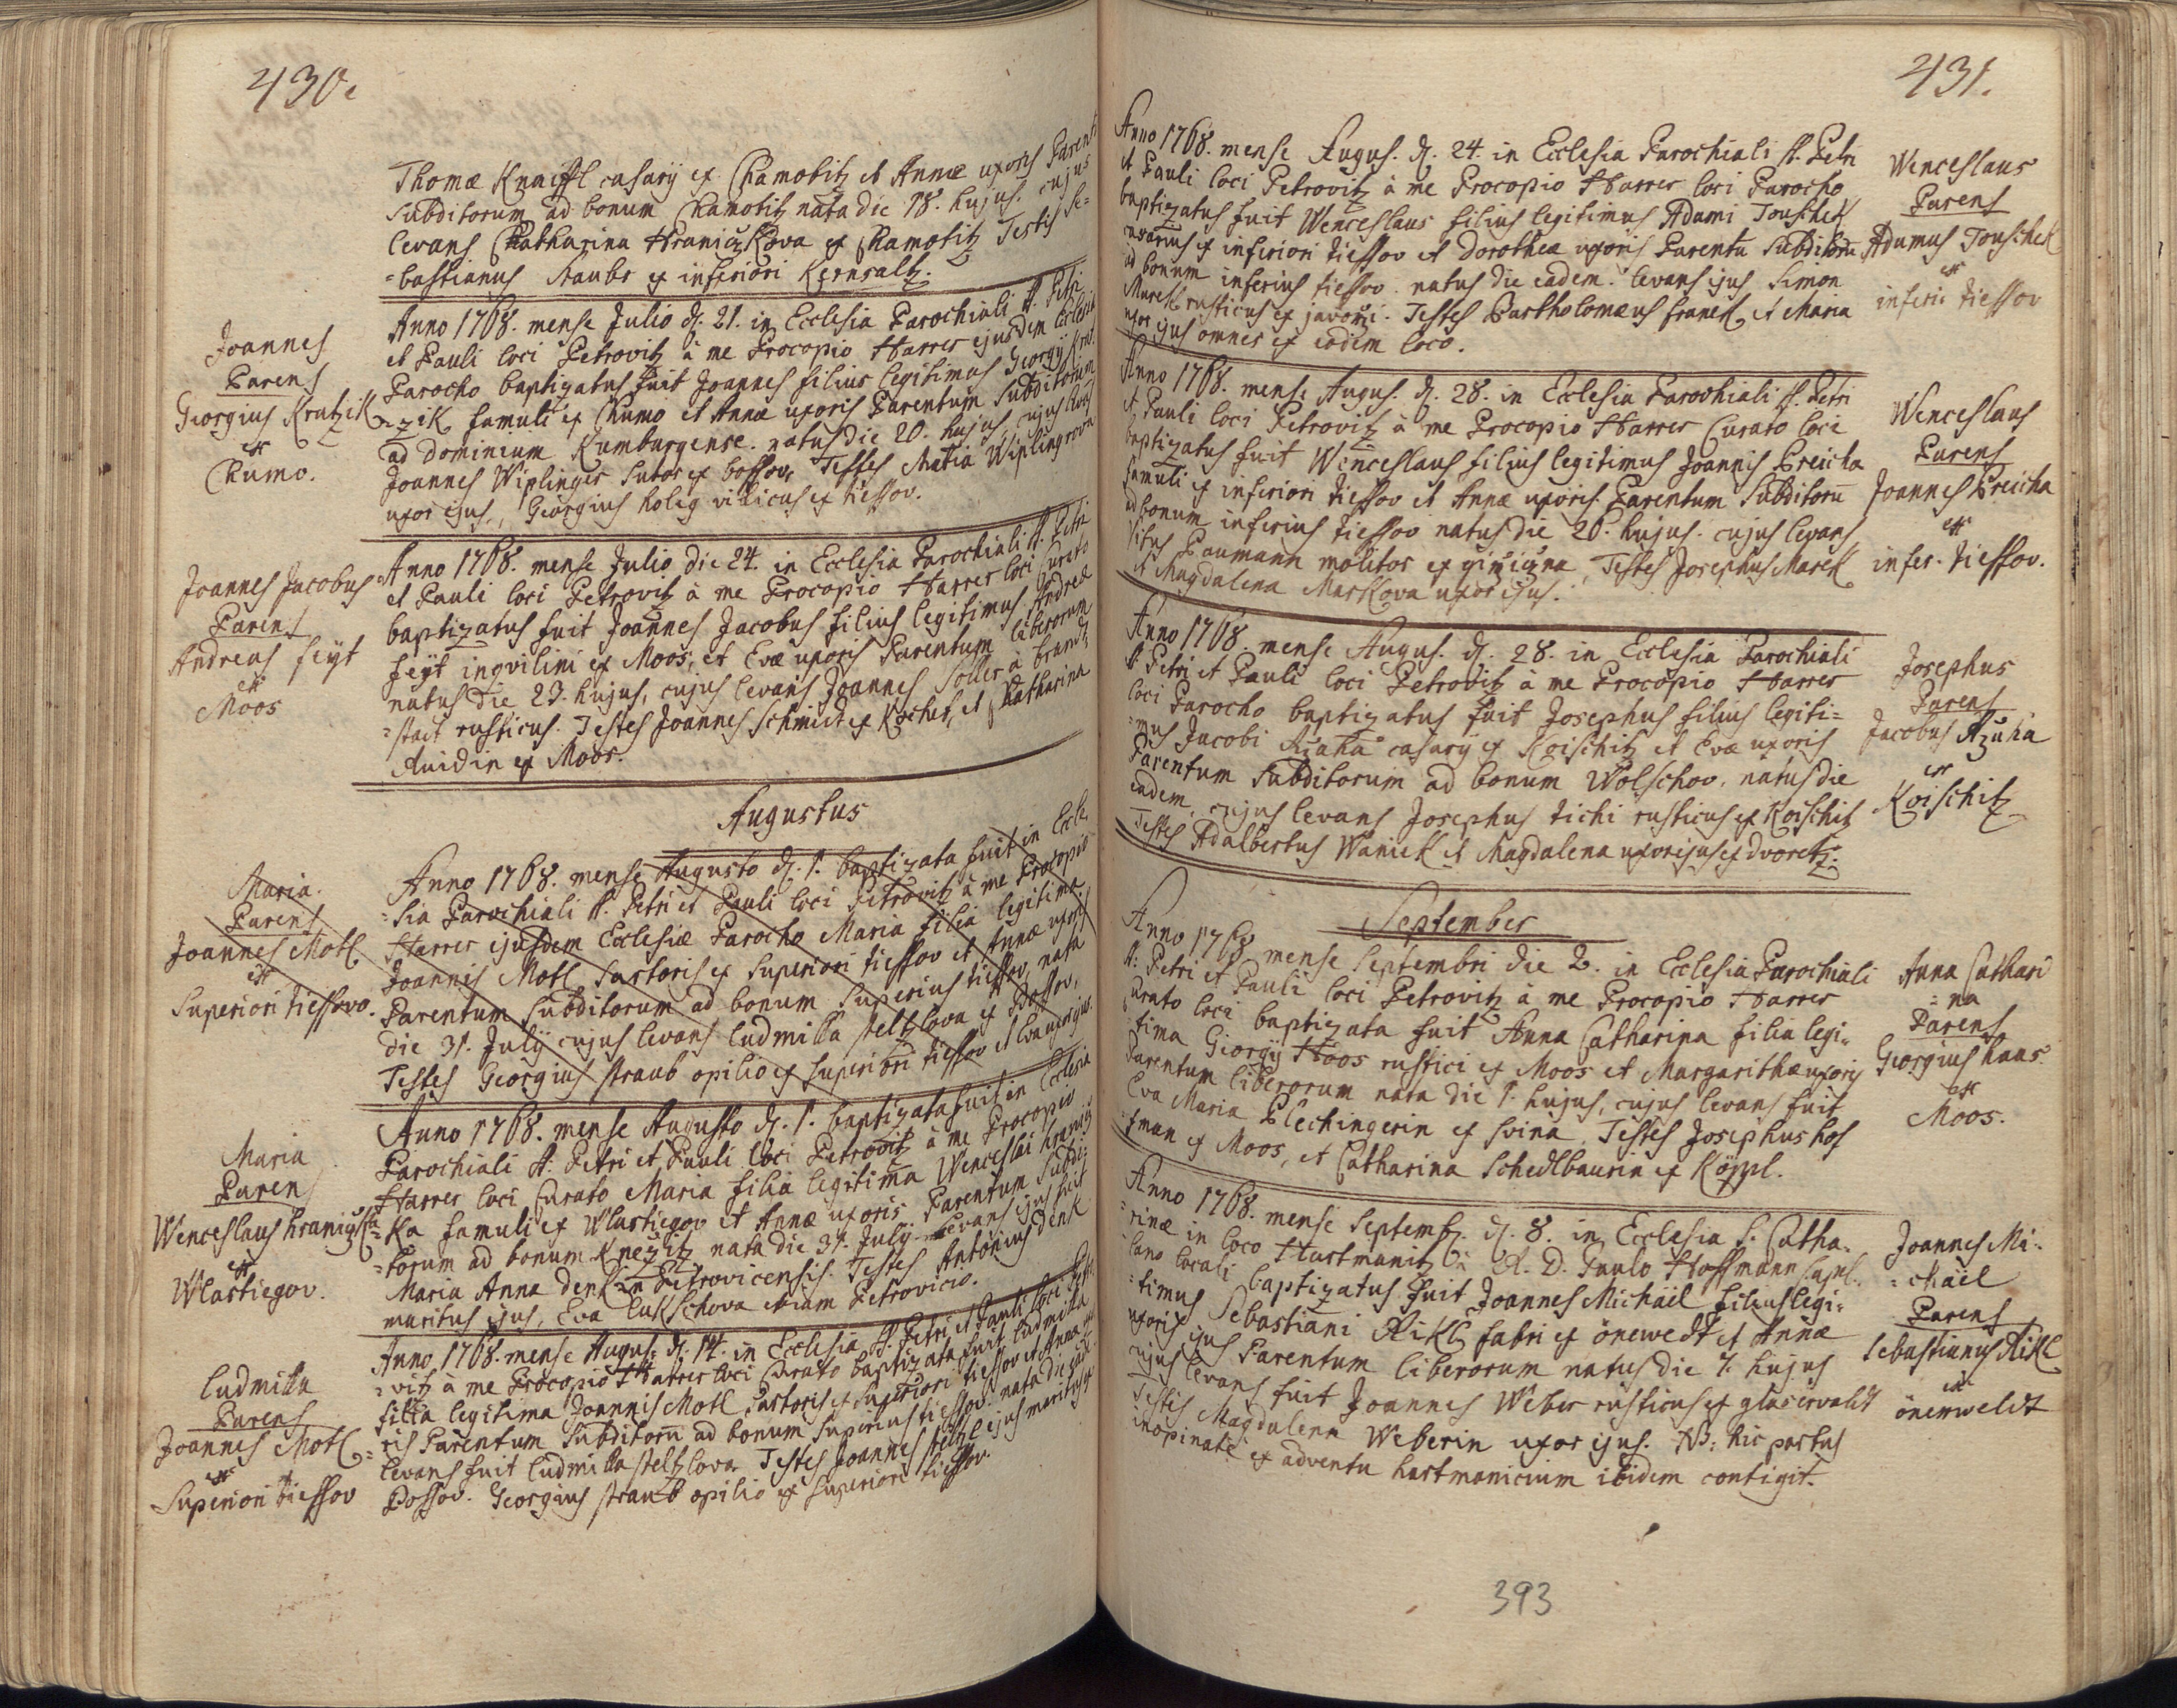 430.
Thomæ Knaiffl casarÿ ex Chamotitz et Annæ uxoris Parent
subditorum ad bonum Chamotitz nata die 18. hujus. cujus
levans Chatharina Hraniczkova ex Chamotitz Testis Se=
=bastianus Staubr ex inferiori Kernsaltz.
Joannes
Parens
Georgius Kratzik
ex
Chumo.
Anno 1768. mense Julio d. 21. in Ecclesia Parochiali S. Petri
et Pauli loci Petrovitz à me Procopio Harrer ejusdem Ecclesiæ
Parocho baptizatus fuit Joannes filius legitimus Georgÿ Krat
=zik famuli ex Chumo et Annæ uxoris Parentum Subditorum
ad dominium Kumburgense. natus die 20. hujus, cujus levans
Joannes Wiplinger Sutor ex bossov, Testes Maria Wiplingrova
uxor ejus, Georgius holig villicus ex tiessov.
Joannes Jacobus
Parens
Andreas feÿt
ex
Moos
Anno 1768. mense Julio die 24. in Ecclesia Parochiali S. Petri
et Pauli loci Petrovitz à me Procopio Harrer loci Curato
baptizatus fuit Joannes Jacobus filius legitimus Andreæ
feÿt inqvilini ex Moos, et Evæ uxoris Parentum liberorum
natus die 23. hujus, cujus levans Joannes Soller à brand=
=statt rusticus. Testes Joannes Schmidt ex Kochet, et Chatharina
Auidin ex Moos.
Augustus
Maria.
Parens
Joannes Motl
ex
Superiori tiessovo.
Anno 1768. mense Augusto d. 1. baptizata fuit in Eccle
=sia Parochiali S. Petri et Pauli loci Petrovitz à me Procopio
Harrer ejusdem Ecclesiæ Parocho Maria filia legitima
Joannis Motl Sartoris ex Superiori tiessov et Annæ uxoris
Parentum Subditorum ad bonum Superius tiessov, nata
die 31. Julÿ cujus levans ludmilla steltzlova ex Possov,
Testes Georgius straub opilio ex superiori tiessov et Eva uxor ejus.
Maria
Parens
Wenceslaus hraniczka
ex
Wlastiegov.
Anno 1768. mense Augusto d. 1. baptizata fuit in Ecclesia
Parochiali S. Petri et Pauli loci Petrovitz à me Procopio
Harrer loci Curato Maria filia legitima Wenceslai hranicz
=ka famuli ex Wlastiegov et Annæ uxoris Parentum Subdi=
=torum ad bonum Knežitz nata die 31. Julÿ levans ejus fuit
Maria Anna denkin Petrovicensis. Testes Antonius denk
maritus ejus, Eva lukschova etiam Petrovicio.
ludmilla
Parens
Joannes Motl
ex
Superiori tiessov
Anno 1768. mense Augus: d. 14. in Ecclesia S. Petri et Pauli loci Petro
=vitz à me Procopio Harrer loci Curato baptizata fuit ludmilla
filia legitima Joannis Motl Sartoris ex Superiori tiessov et Annæ uxo
=ris Parentum Subditorū ad bonum Superius tiessov. nata die ead.
levans fuit ludmilla steltzlova Testes Joannes steltzl ejus maritus ex
Possov. Georgius straub opilio ex superiori tiessov.
431.
Anno 1768. mense Augus. d. 24. in Ecclesia Parochiali S. Petri
et Pauli loci Petrovitz à me Procopio Harrer loci Parocho
baptizatus fuit Wenceslaus filius legitimus Adami Touschek
ex inferiori tiessov et dorotheæ uxoris Parentū Subditorū
ad bonum inferius tiessov. natus die eadem. levans ejus Simon
Marek rusticus ex javoři. Testes Bartholomæus franek, et Maria
uxor ejus omnes ex eodem loco.
Wenceslaus
Parens
Adamus Touschek
ex
inferi: tiessov
Anno 1768. mense Augus. d. 28. in Ecclesia Parochiali S. Petri
et Pauli loci Petrovitz à me Procopio Harrer Curato loci
baptizatus fuit Wenceslaus filius legitimus Joannis Breicha
famuli ex inferiori tiessov et Annæ uxoris Parentum Subditorū
ad bonum inferius tiessov natus die 26. hujus. cujus levans
Vitus Paumann molitor ex Testes Josephus Marek
et Magdalena Markova uxor ejus.
Wenceslaus
Parens
Joannes Breicha
ex
infer. tiessov.
Anno 1768. mense Augus. d. 28. in Ecclesia Parochiali
S. Petri et Pauli loci Petrovitz à me Procopio Harrer
loci Parocho baptizatus fuit Josephus filius legiti=
=mus Jacobi casarÿ ex Koischitz et Evæ uxoris
Parentum Subditorum ad bonum Wolschov. natus die
eadem, cujus levans Josephus tichi rusticus ex Koischitz
Testes Adalbertus Waniek et Magdalena uxor ejus ex dvoretz.
Josephus
Parens
Jacobus
ex
Koischitz
September
Anno 1768 mense Septembri die 2. in Ecclesia Parochiali
S. Petri et Pauli loci Petrovitz à me Procopio Harrer
Curato loci baptizata fuit Anna Catharina filia legi=
tima Giorgÿ Hoos rustici ex Moos et Margarithæ uxoris
Parentum liberorum nata die 1. hujus, cujus levans fuit
Eva Maria Plechingerin ex Svina. Testes Josephus hof
=man ex Moos, et Catharina Schedlbaurin ex Köppl.
Anna Cathari
=na
Parens
Georgius haas
ex
Moos.
Anno 1768. mense Septemb. d. 8. in Ecclesia S. Catha=
=rinæ in loco Hartmanitz à R. D. Paulo Hoffmann Capel=
lano locali baptizatus fuit Joannes Michaël filius legi=
=timus Sebastiani Rikl fabri ex önewedt et Annæ
uxoris ejus Parentum liberorum natus die 7. hujus
cujus levans fuit Joannes Weber rusticus ex glaserwaldt
Testis Magdalena Weberin uxor ejus. NB: hic partus
inopinate ex adventu hartmanicium ibidem contigit.
Joannes Mi=
=chaël
Parens
Sebastianus Rikl
ex
önenweldt
393